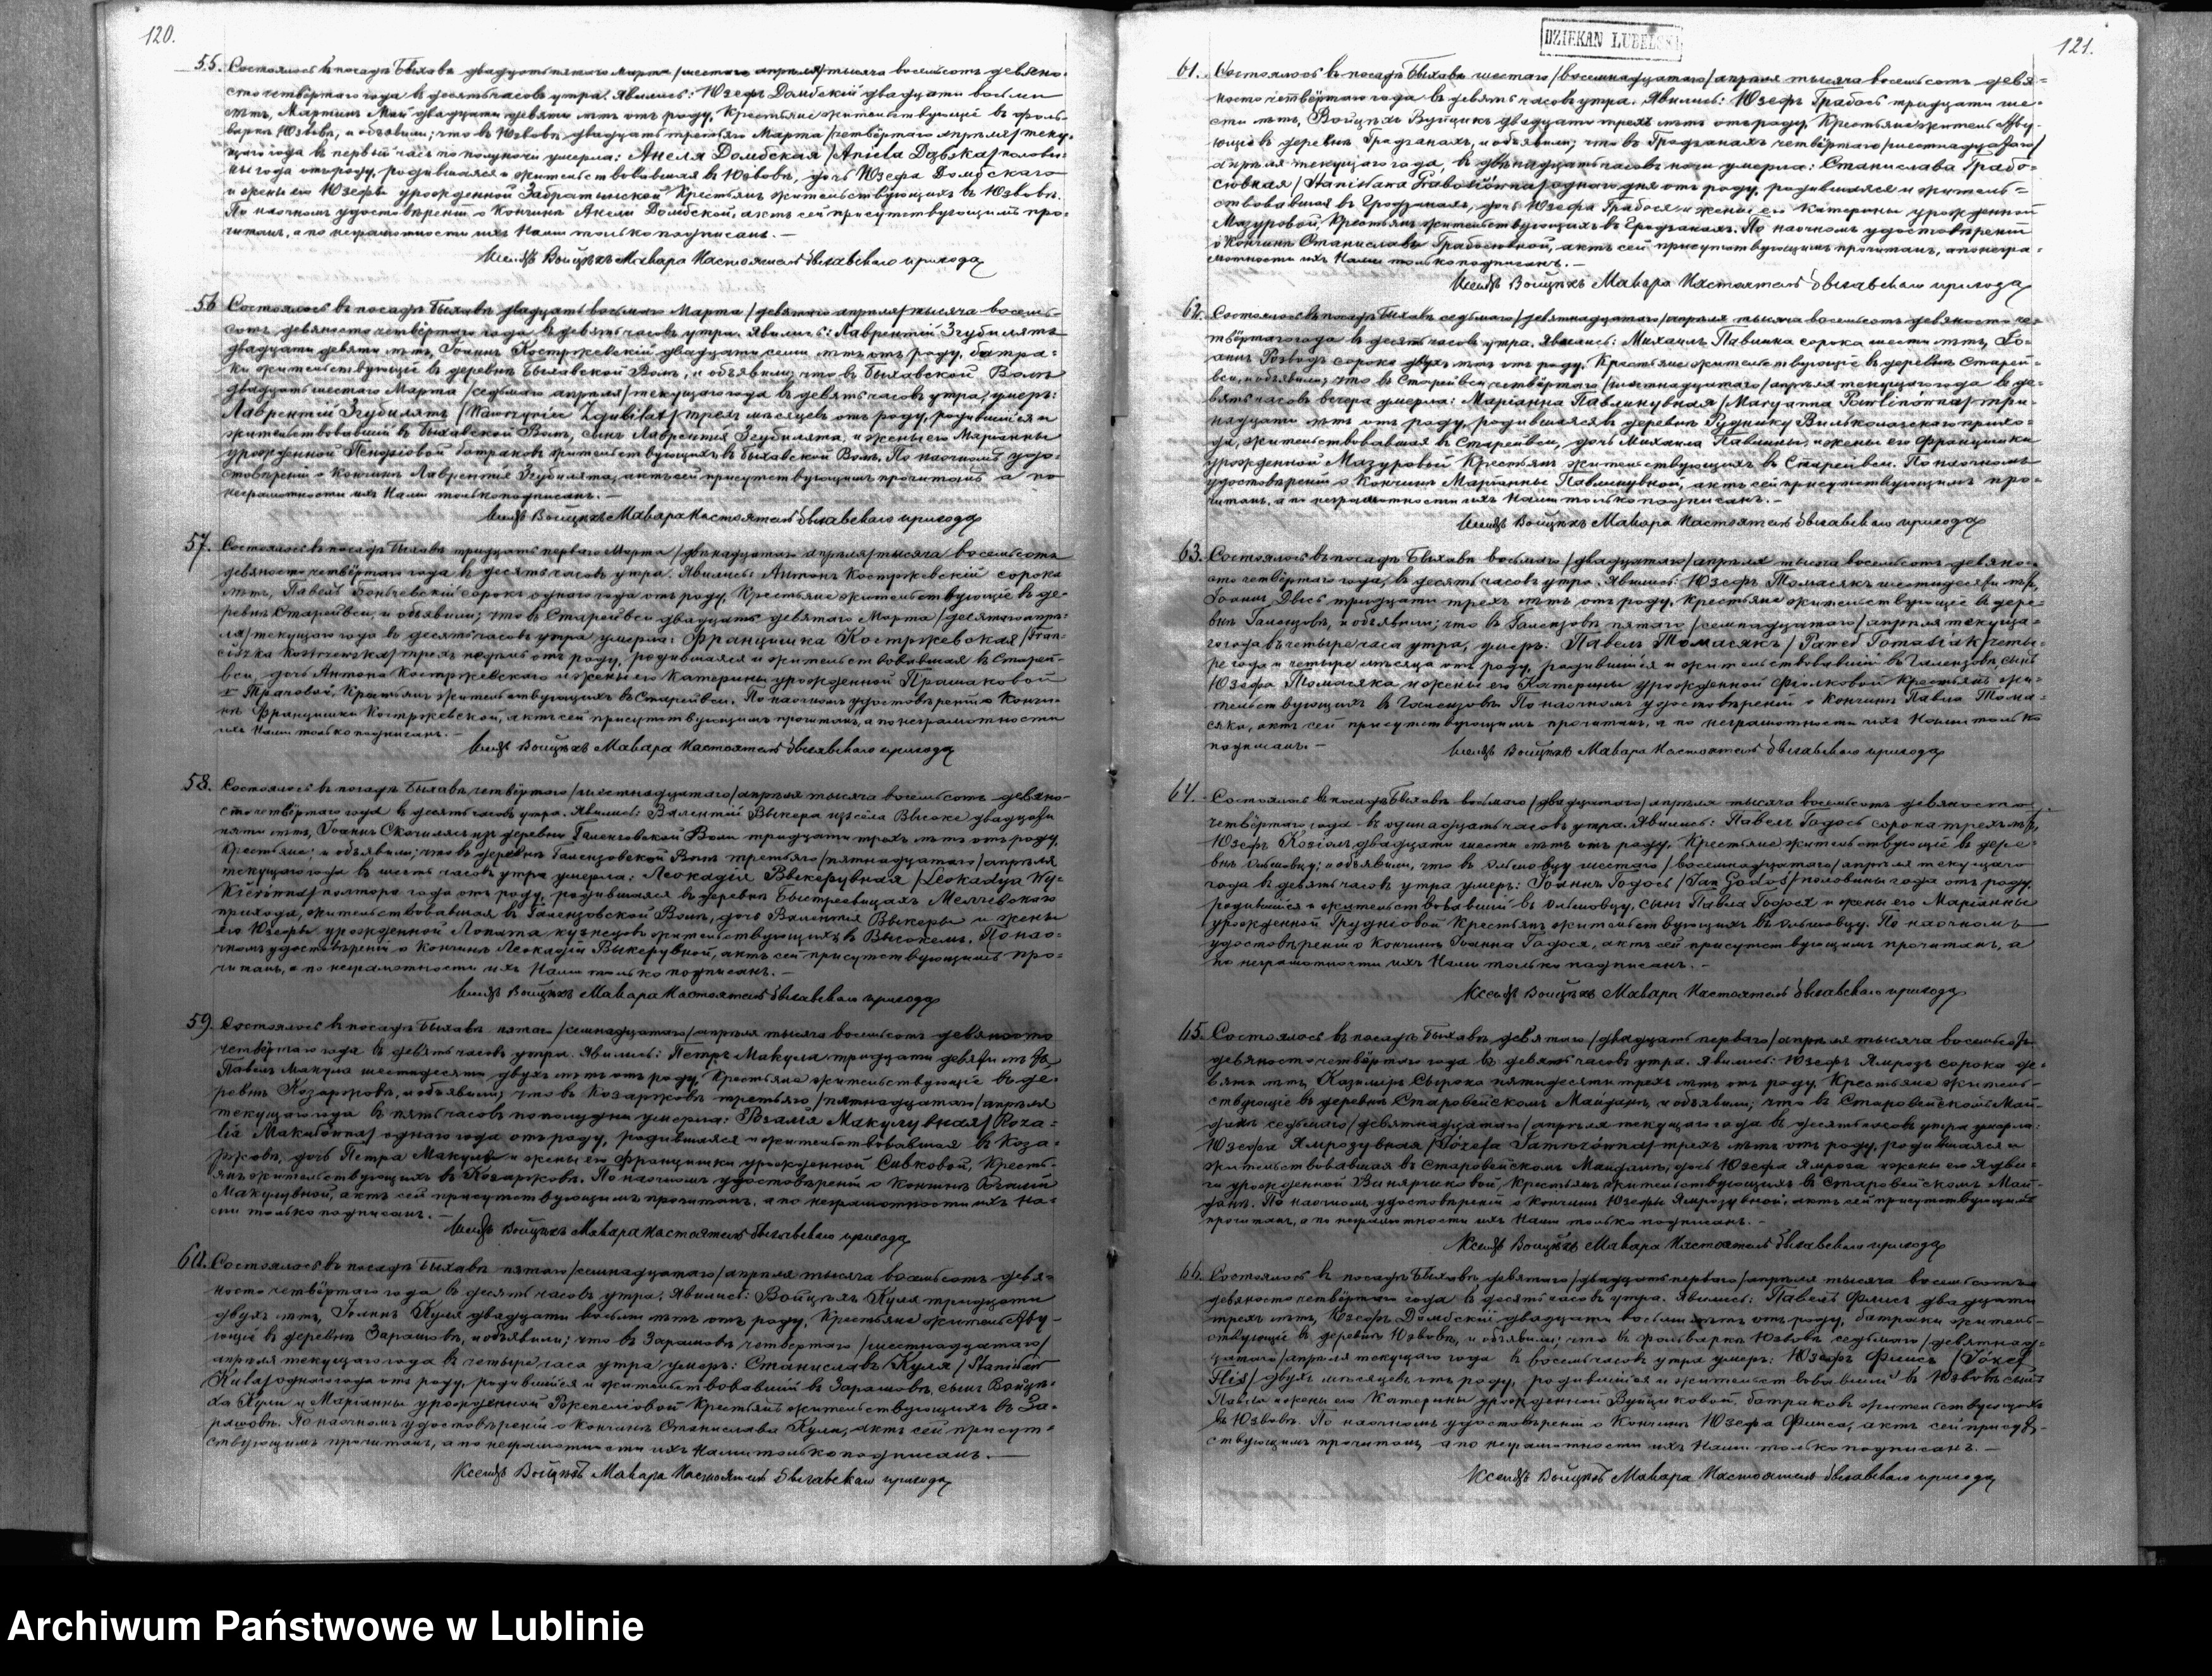 120.
55. Состоялось въ посадѣ Быхавѣ двадцать пятаго Марта /шестаго апрѣля/ тысяча восемьсотъ девяно-
сто четвёртаго года въ десять часовъ утра. Явились: Юзефъ Домбскій двадцати восьми
лѣтъ, Мартинъ Май двадцати девяти лѣтъ отъ роду, Крестьяне жительствующіе въ фоль-
варкѣ Юзвовѣ, и объявили; что въ Юзвовѣ двадцать третьяго Марта /четвёртаго апрѣля/ теку-
щаго года въ первый часъ по полуночи умерла: Анеля Домбская /Aniela Dąbska/ полови-
ны года отъ роду, родившаяся и жительствовавшая въ Юзвовѣ, дочь Юзефа Домбскаго
и жены его Юзефы урожденной Крестьянъ жительствующихъ въ Юзвовѣ.
По наочномъ удостовѣреніи о Кончинѣ Анели Домбской, актъ сей присутствующимъ про-
читанъ, а по неграмотности ихъ Нами только подписанъ. —
Ксендзъ Войцѣхъ Макара Настоятель Быхавскаго прихода
56 Состоялось въ посадѣ Быхавѣ двадцать восьмаго Марта /девятаго апрѣля/ тысяча восемь-
сотъ девяносто четвёртаго года въ девять часовъ утра. Явились: Лаврентій Згубилятъ
двадцати девяти лѣтъ, Іоаннъ Костржевскій двадцати семи лѣтъ отъ роду, батра-
ки жительствующіе въ деревнѣ Быхавской Волѣ, и объявили; что въ Быхавской Волѣ
двадцать шестаго Марта /седьмаго апрѣля/ текущаго года въ девять часовъ утра, умеръ:
Лаврентій Згубилятъ /Wawrzyniec Zgubiłat/ трехъ мѣсяцевъ отъ роду, родившійся и
жительствовавшій въ Быхавской Волѣ, сынъ Лаврентія Згубилята, и жены его Маріанны
урожденной батраковъ жительствующихъ въ Быхавской Волѣ. По наочномъ удо-
стовѣреніи о Кончинѣ Лаврентія Згубилята, актъ сей присутствующимъ прочитанъ а по
неграмотности ихъ Нами только подписанъ. —
Ксендзъ Войцѣхъ Макара Настоятель Быхавскаго прихода
57. Состоялось въ посадѣ Быхавѣ тридцать перваго Марта /двѣнадцатаго апрѣля/ тысяча восемьсотъ
девяносто четвёртаго года въ десять часовъ утра. Явились: Антонъ Костржевскій сорока
лѣтъ, Павелъ сорокъ одного года отъ роду, Крестьяне жительствующіе въ де-
ревнѣ Старейвси, и объявили; что въ Старейвси двадцать девятаго Марта /десятаго апрѣ-
ля/ текущаго года въ десять часовъ утра умерла: Францишка Костржевская /Fran-
ciszka Kostrzewska/ трехъ недѣль отъ роду, родившаяся и жительствовавшая въ Старей-
вси, дочь Антона Костржевскаго и жены его Катерины урожденной
Крестьянъ жительствующихъ въ Старейвси. По наочномъ удостовѣреніи о Кончи-
нѣ Францишки Костржевской, актъ сей присутствующимъ прочитанъ, а по неграмотности
ихъ Нами только подписанъ. —
Ксендзъ Войцѣхъ Макара Настоятель Быхавскаго прихода
58. Состоялось въ посадѣ Быхавѣ четвёртаго /шестнадцатаго/ апрѣля тысяча восемьсотъ девяно-
сто четвёртаго года въ десять часовъ утра. Явились: Валентій Выкера изъ села Высоке двадцати
пяти лѣтъ, Іоаннъ Скочилясъ изъ деревни Галензовской Воли тридцати трехъ лѣтъ отъ роду,
Крестьяне; и объявили; что въ деревнѣ Галензовской Волѣ третьяго /пятнадцатаго/ апрѣля
текущаго года въ шесть часовъ утра умерла: Леокадія Выкерувная /Leokadya Wy-
kierówna/ полтора года отъ роду, родившаяся въ деревнѣ Быстржеевицахъ Мелгевскаго
прихода, жительствовавшая въ Галензовской Волѣ, дочь Валентія Выкеры и жены
его Юзефы урожденной Лопата кузнецовъ жительствующихъ въ Высокемъ. По нао-
чномъ удостовѣреніи о Кончинѣ Леокадіи Выкерувной, актъ сей присутствующимъ про-
читанъ, а по неграмотности ихъ Нами только подписанъ. —
Ксендзъ Войцѣхъ Макара Настоятель Быхавскаго прихода
59. Состоялось въ посадѣ Быхавѣ пятаго /семнадцатаго/ апрѣля тысяча восемьсотъ девяносто
четвёртаго года въ девять часовъ утра. Явились: Петръ Макула тридцати девяти лѣтъ
Павелъ Макула шестидесяти двухъ лѣтъ отъ роду, Крестьяне жительствующіе въ де-
ревнѣ Козаржовѣ, и объявили; что въ Козаржовѣ третьяго /пятнадцатаго/ апрѣля
текущаго года въ пять часовъ пополудни умерла: Розалія Макулувная /Roza-
lia Makulówna/ одного года отъ роду, родившаяся и жительствовавшая въ Коза-
ржовѣ, дочь Петра Макулы и жены его Францишки урожденной Сивковой, Кресть-
янъ жительствующихъ въ Козаржовѣ. По наочномъ удостовѣреніи о Кончинѣ Розаліи
Макулувной, актъ сей присутствующимъ прочитанъ, а по неграмотности ихъ На-
ми только подписанъ. —
Ксендзъ Войцѣхъ Макара Настоятель Быхавскаго прихода
60. Состоялось въ посадѣ Быхавѣ пятаго /семнадцатаго/ апрѣля тысяча восемьсотъ девя-
носто четвёртаго года въ десять часовъ утра. Явились: Войцѣхъ Куля тридцати
двухъ лѣтъ, Іоаннъ Куля двадцати восьми лѣтъ отъ роду, Крестьяне жительству-
ющіе въ деревнѣ Зарашовѣ, и объявили; что въ Зарашовѣ четвёртаго /шестнадцатаго/
апрѣля текущаго года въ четыре часа утра умеръ: Станиславъ Куля /Stanisław
Kula/ одного года отъ роду, родившійся и жительствовавшій въ Зарашовѣ, сынъ Войцѣ-
ха Кули и Маріанны урожденной Крестьянъ жительствующихъ въ За-
рашовѣ. По наочномъ удостовѣреніи о Кончинѣ Станислава Кули, актъ сей присут-
ствующимъ прочитанъ, а по неграмотности ихъ Нами только подписанъ. —
Ксендзъ Войцѣхъ Макара Настоятель Быхавскаго прихода
DZIEKAN LUBELSKI
121.
61. Состоялось въ посадѣ Быхавѣ шестаго /восемнадцатаго/ апрѣля тысяча восемьсотъ девя-
носто четвёртаго года въ девять часовъ утра. Явились: Юзефъ Грабось тридцати ше-
сти лѣтъ, Войцѣхъ Вуйцикъ двадцати трехъ лѣтъ отъ роду, Крестьяне жительству-
ющіе въ деревнѣ Гродзанахъ, и объявили; что въ Гродзанахъ четвёртаго /шестнадцатаго/
апрѣля текущаго года, въ двѣнадцать часовъ ночи умерла: Станислава Грабо-
сювная /Stanisława Grabosiówna/ одного дня отъ роду, родившаяся и житель-
ствовавшая въ Гродзанахъ, дочь Юзефа Грабося и жены его Катерины урожденной
Мазуровой, Крестьянъ жительствующихъ въ Гродзанахъ. По наочномъ удостовѣреніи
о Кончинѣ Станиславы Грабосювной, актъ сей присутствующимъ прочитанъ, а по негра-
мотности ихъ Нами только подписанъ. —
Ксендзъ Войцѣхъ Макара Настоятель Быхавскаго прихода
62. Состоялось въ посадѣ Быхавѣ седьмаго /девятнадцатаго/ апрѣля тысяча восемьсотъ девяносто че-
твёртаго года въ десять часовъ утра. Явились: Михаилъ Павлина сорока шести лѣтъ, Іо-
аннъ Розводъ сорока двухъ лѣтъ отъ роду, Крестьяне жительствующіе въ деревнѣ Старей-
вси, и объявили; что въ Старейвси четвёртаго /шестнадцатаго/ апрѣля текущаго года въ де-
вять часовъ вечера умерла: Маріанна Павлинувная /Maryanna Pawlinówna/ три-
надцати лѣтъ отъ роду, родившаяся въ деревнѣ Рудники Вильколазскаго прихо-
да, жительствовавшая въ Старейвси, дочь Михаила Павлины, и жены его Францишки
урожденной Мазуровой Крестьянъ жительствующихъ въ Старейвси. По наочномъ
удостовѣреніи о Кончинѣ Маріанны Павлинувной, актъ сей присутствующимъ про-
читанъ, а по неграмотности ихъ Нами только подписанъ. —
Ксендзъ Войцѣхъ Макара Настоятель Быхавскаго прихода
63. Состоялось въ посадѣ Быхавѣ восьмаго /двадцатаго/ апрѣля тысяча восемьсотъ девяно-
сто четвёртаго года, въ десять часовъ утра. Явились: Юзефъ Томасякъ шестидесяти лѣтъ,
Іоаннъ Двысь тридцати трехъ лѣтъ отъ роду, Крестьяне жительствующіе въ дере-
внѣ Галензовѣ, и объявили; что въ Галензовѣ пятаго /семнадцатаго/ апрѣля текуща-
го года въ четыре часа утра, умеръ: Павелъ Томасякъ /Paweł Tomasiak/ четы-
ре года и четыре мѣсяца отъ роду, родившійся и жительствовавшій въ Галензовѣ, сынъ
Юзефа Томасяка и жены его Катерины урожденной Фіолковой Крестьянъ жи-
тельствующихъ въ Галензовѣ. По наочномъ удостовѣреніи о Кончинѣ Павла Тома-
сяка, актъ сей присутствующимъ прочитанъ, а по неграмотности ихъ Нами только
подписанъ. —
Ксендзъ Войцѣхъ Макара Настоятель Быхавскаго прихода
64. Состоялось въ посадѣ Быхавѣ восьмаго /двадцатаго/ апрѣля тысяча восемьсотъ девяносто
четвёртаго года въ одинадцать часовъ утра. Явились: Павелъ Годось сорока трехъ лѣтъ,
Юзефъ Козіолъ двадцати шести лѣтъ отъ роду, Крестьяне жительствующіе въ дере-
внѣ Ольшовцу; и объявили, что въ Ольшовцу шестаго /восемнадцатаго/ апрѣля текущаго
года въ девять часовъ утра умеръ: Іоаннъ Годось /Jan Godoś/ половины года отъ роду,
родившійся и жительствовавшій въ Ольшовцу, сынъ Павла Годося и жены его Маріанны
урожденной Грудніовой Крестьянъ жительствующихъ въ Ольшовцу. По наочномъ
удостовѣреніи о Кончинѣ Іоанна Годося, актъ сей присутствующимъ прочитанъ, а
по неграмотности ихъ Нами только подписанъ. —
Ксендзъ Войцѣхъ Макара Настоятель Быхавскаго прихода
65. Состоялось въ посадѣ Быхавѣ девятаго /двадцать перваго/ апрѣля тысяча восемьсотъ
девяносто четвёртаго года въ девять часовъ утра. Явились: Юзефъ Ямрозъ сорока де-
вяти лѣтъ, Казимиръ Сырока пятидесяти трехъ лѣтъ отъ роду, Крестьяне житель-
ствующіе въ деревнѣ Старовейскомъ Майданѣ, и объявили; что въ Старовейскомъ Май-
данѣ седьмаго /девятнадцатаго/ апрѣля текущаго года въ десять часовъ утра умерла:
Юзефа Ямрозувная /Józefa Jamrozówna/ трехъ лѣтъ отъ роду, родившаяся и
жительствовавшая въ Старовейскомъ Майданѣ, дочь Юзефа Ямроза и жены его Ядви-
ги урожденной Винярчиковой, Крестьянъ жительствующихъ въ Старовейскомъ Май-
данѣ. По наочномъ удостовѣреніи о Кончинѣ Юзефы Ямрозувной, актъ сей присутствующимъ
прочитанъ, а по неграмотности ихъ Нами только подписанъ. —
Ксендзъ Войцѣхъ Макара Настоятель Быхавскаго прихода
66. Состоялось въ посадѣ Быхавѣ девятаго /двадцать перваго/ апрѣля тысяча восемьсотъ
девяносто четвёртаго года въ десять часовъ утра. Явились: Павелъ Флисъ двадцати
трехъ лѣтъ, Юзефъ Домбскій двадцати восьми лѣтъ отъ роду, батраки житель-
ствующіе въ деревнѣ Юзвовѣ, и объявили; что въ фольваркѣ Юзвовѣ седьмаго /девятнад-
цатаго/ апрѣля текущаго года въ восемь часовъ утра умеръ: Юзефъ Флисъ /Józef
Flis/ двухъ мѣсяцевъ отъ роду, родившійся и жительствовавшій въ Юзвовѣ сынъ
Павла и жены его Катерины урожденной Вуйциковой, батраковъ жительствующихъ
въ Юзвовѣ. По наочномъ удостовѣреніи о Кончинѣ Юзефа Флиса, актъ сей присут-
ствующимъ прочитанъ а по неграмотности ихъ Нами только подписанъ. —
Ксендзъ Войцѣхъ Макара Настоятель Быхавскаго прихода
Archiwum Państwowe w Lublinie